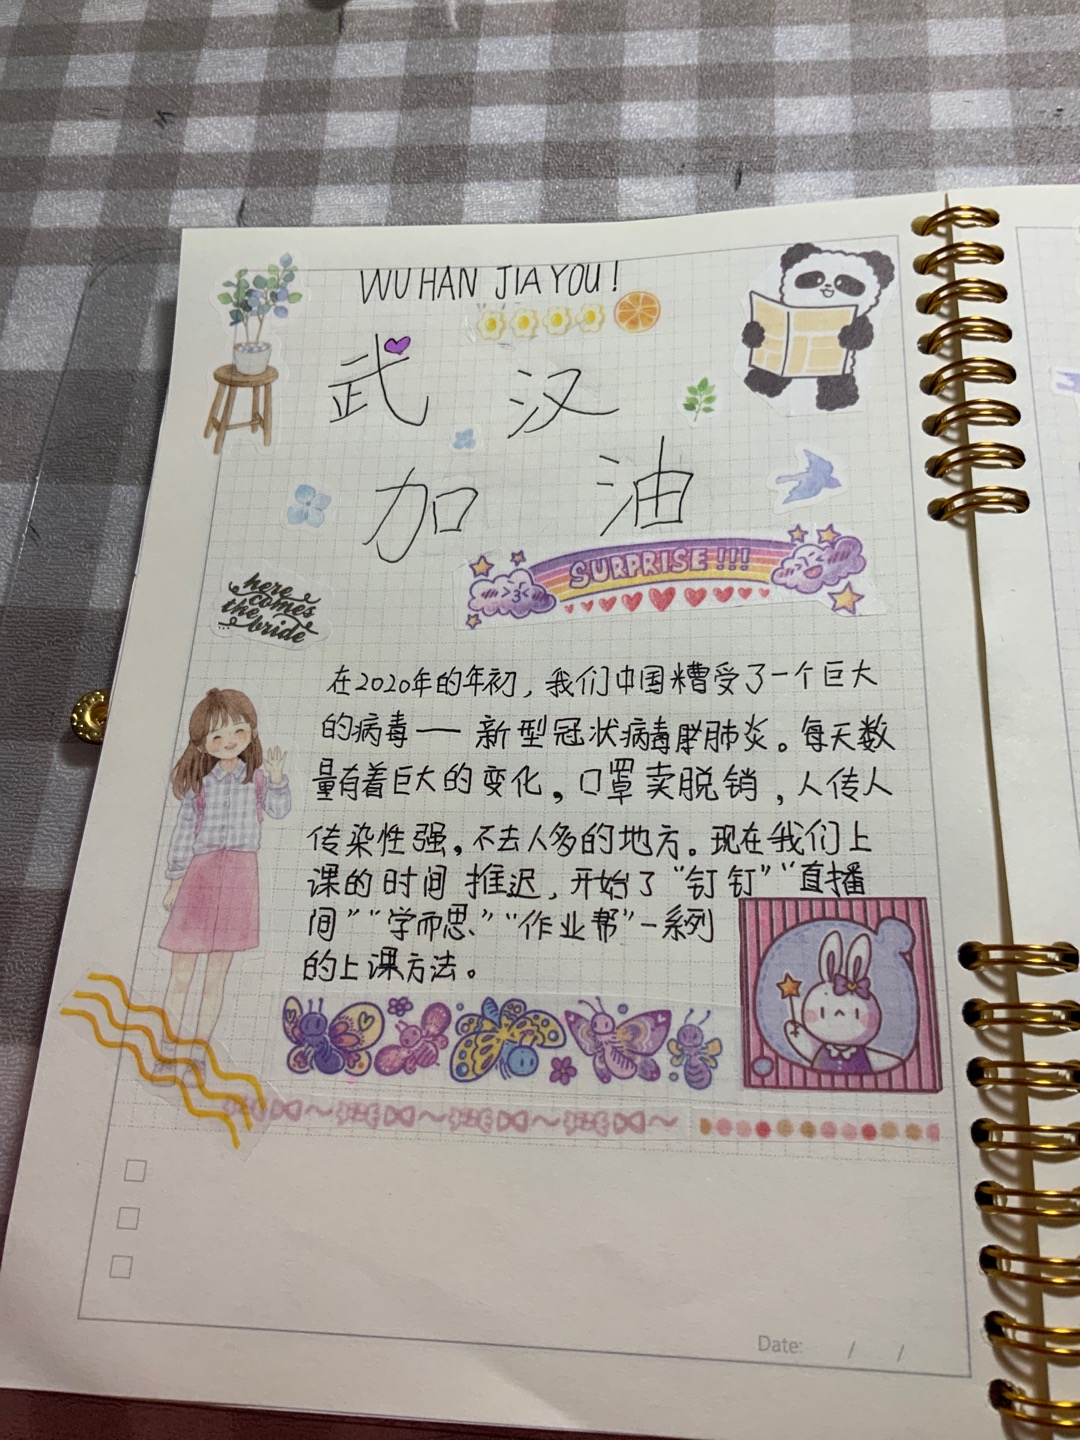 WU HAN JIA YOU!
武汉
加油
SURPRISE!!!
here
comes
the
bride
在2020年的年初，我们中国糟受了一个巨大
的病毒——新型冠状病毒肺炎。每天数
量有着巨大的变化，口罩卖脱销，人传人
传染性强，不去人多的地方。现在我们上
课的时间推迟，开始了“钉钉”“直播
间”“学而思”“作业帮”一系列
的上课方法。
Date: / /